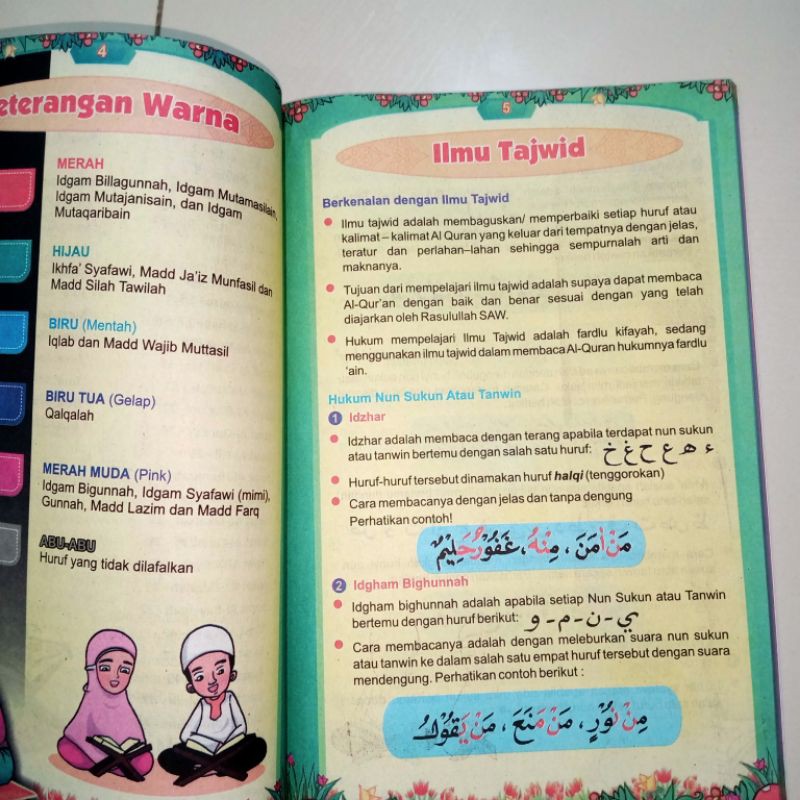 4
eterangan Warna
MERAH
Idgam Billagunnah, Idgam Mutamasilain,
Idgam Mutajanisain, dan Idgam
Mutaqaribain
HIJAU
Ikhfa' Syafawi, Madd Ja'iz Munfasil dan
Madd Silah Tawilah
BIRU (Mentah)
Iqlab dan Madd Wajib Muttasil
BIRU TUA (Gelap)
Qalqalah
MERAH MUDA (Pink)
Idgam Bigunnah, Idgam Syafawi (mimi),
Gunnah, Madd Lazim dan Madd Farq
ABU-ABU
Huruf yang tidak dilafalkan
5
Ilmu Tajwid
Berkenalan dengan Ilmu Tajwid
Ilmu tajwid adalah membaguskan/ memperbaiki setiap huruf atau
kalimat – kalimat Al Quran yang keluar dari tempatnya dengan jelas,
teratur dan perlahan–lahan sehingga sempurnalah arti dan
maknanya.
Tujuan dari mempelajari ilmu tajwid adalah supaya dapat membaca
Al-Qur'an dengan baik dan benar sesuai dengan yang telah
diajarkan oleh Rasulullah SAW.
Hukum mempelajari Ilmu Tajwid adalah fardlu kifayah, sedang
menggunakan ilmu tajwid dalam membaca Al-Quran hukumnya fardlu
'ain.
Hukum Nun Sukun Atau Tanwin
1 Idzhar
Idzhar adalah membaca dengan terang apabila terdapat nun sukun
atau tanwin bertemu dengan salah satu huruf: ء ه ع ح غ خ
Huruf-huruf tersebut dinamakan huruf halqi (tenggorokan)
Cara membacanya dengan jelas dan tanpa dengung
Perhatikan contoh!
مَنْ اٰمَنَ ، مِنْهُ ، غَفُوْرٌحَلِيْمٌ
2 Idgham Bighunnah
Idgham bighunnah adalah apabila setiap Nun Sukun atau Tanwin
bertemu dengan huruf berikut: ي - ن - م - و
Cara membacanya adalah dengan meleburkan suara nun sukun
atau tanwin ke dalam salah satu empat huruf tersebut dengan suara
mendengung. Perhatikan contoh berikut :
مِنْ نُوْرٍ ، مَنْ مَنَعَ ، مَنْ يَقُوْلُ